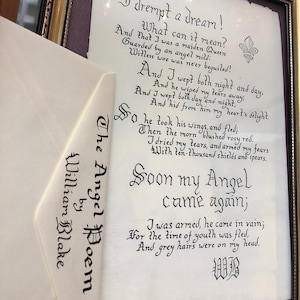 I drempt a dream!
What can it mean?
And that I was a maiden Queen
Guarded by an angel mild:
Witless woe was never beguiled!
And I wept both night and day,
And he wiped my tears away;
And I wept both day and night,
And hid from him my heart's delight
So he took his wings, and fled;
Then the morn blushed rosy red.
I dried my tears, and armed my fears
With ten-thousand shields and spears.
Soon my Angel
came again;
I was armed, he came in vain;
For the time of youth was fled,
And grey hairs were on my head.
WB
The Angel Poem
by
William Blake